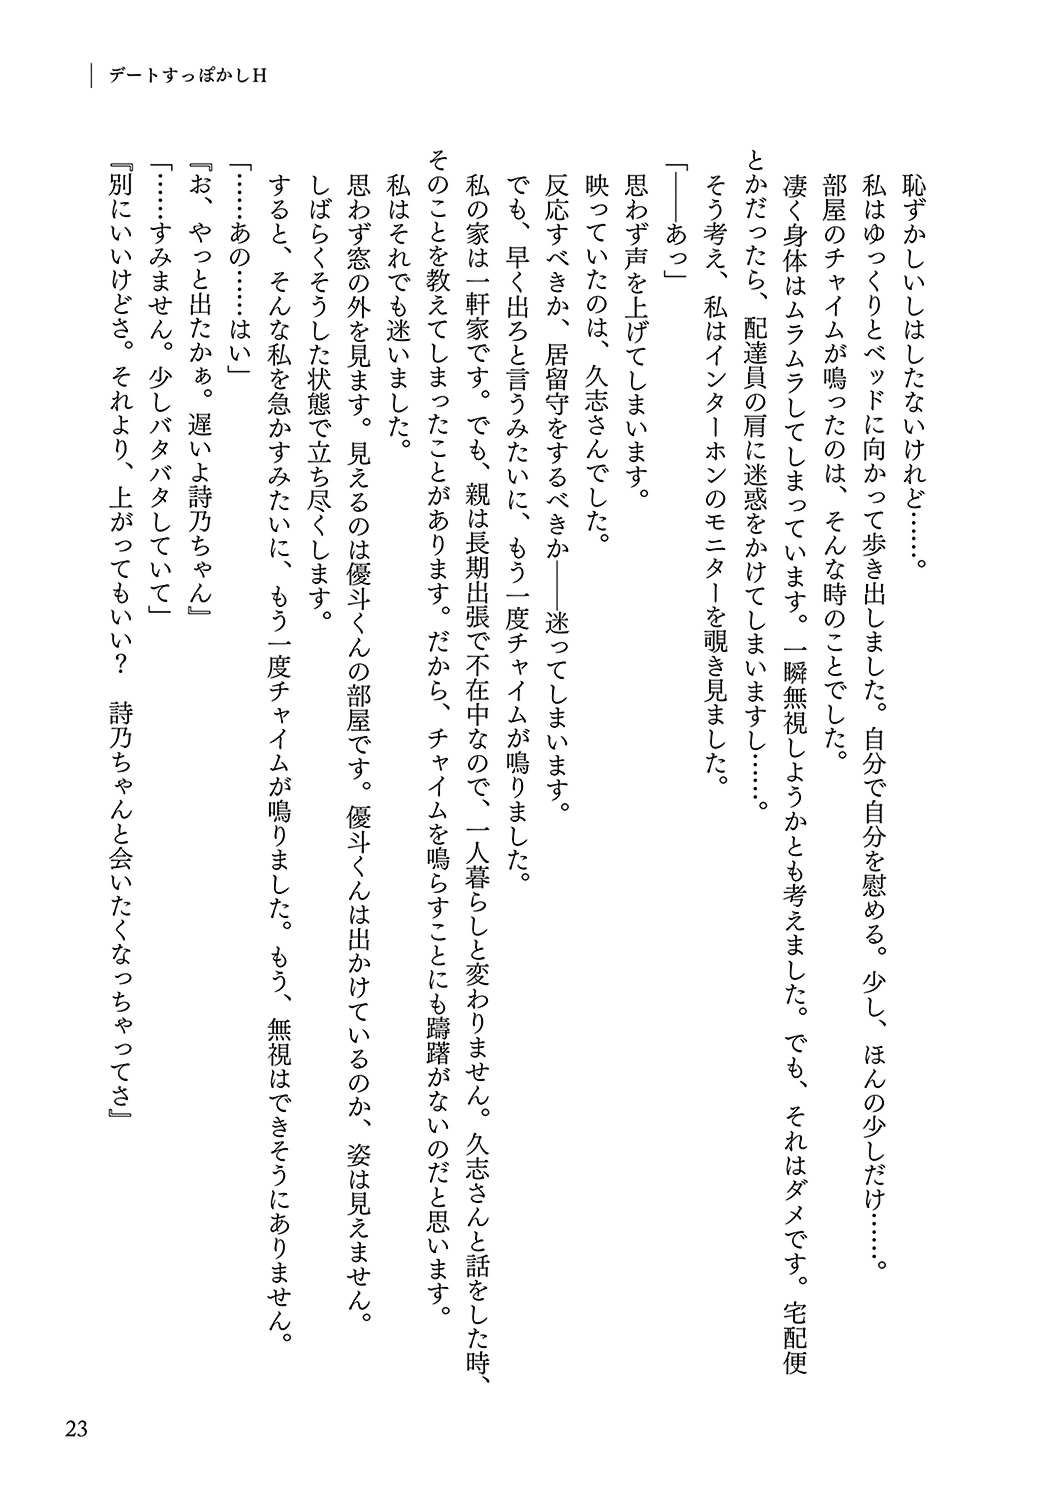 デートすっぽかしH
恥ずかしいしはしたないけれど……。
私はゆっくりとベッドに向かって歩き出しました。自分で自分を慰める。少し、ほんの少しだけ……。
部屋のチャイムが鳴ったのは、そんな時のことでした。
凄く身体はムラムラしてしまっています。一瞬無視しようかとも考えました。でも、それはダメです。宅配便
とかだったら、配達員の肩に迷惑をかけてしまいますし……。
そう考え、私はインターホンのモニターを覗き見ました。
「――あっ」
思わず声を上げてしまいます。
映っていたのは、久志さんでした。
反応すべきか、居留守をするべきか――迷ってしまいます。
でも、早く出ろと言うみたいに、もう一度チャイムが鳴りました。
私の家は一軒家です。でも、親は長期出張で不在中なので、一人暮らしと変わりません。久志さんと話をした時、
そのことを教えてしまったことがあります。だから、チャイムを鳴らすことにも躊躇がないのだと思います。
私はそれでも迷いました。
思わず窓の外を見ます。見えるのは優斗くんの部屋です。優斗くんは出かけているのか、姿は見えません。
しばらくそうした状態で立ち尽くします。
すると、そんな私を急かすみたいに、もう一度チャイムが鳴りました。もう、無視はできそうにありません。
「……あの……はい」
『お、やっと出たかぁ。遅いよ詩乃ちゃん』
「……すみません。少しバタバタしていて」
『別にいいけどさ。それより、上がってもいい？　詩乃ちゃんと会いたくなっちゃってさ』
23